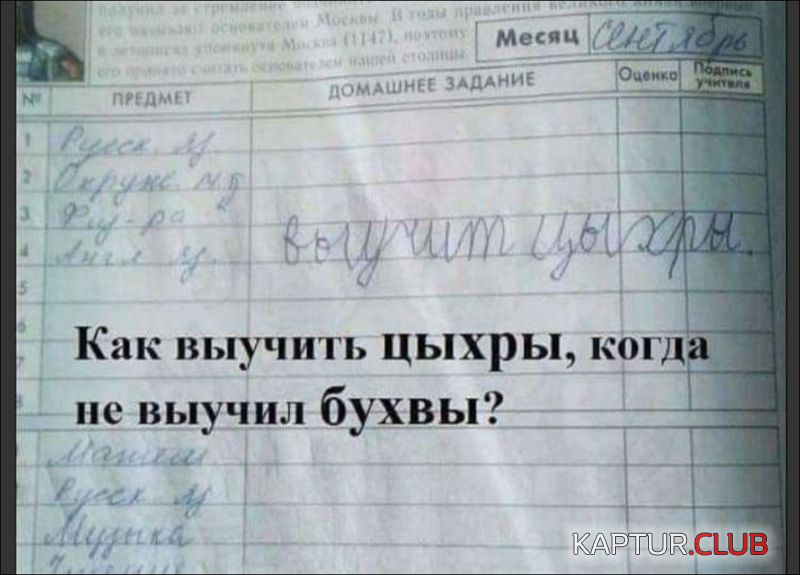 получил за стремление
его называют основателем Москвы. В годы правления великого князя впервые
в летописях упомянута Москва (1147), поэтому
его принято считать основателем нашей столицы.
Месяц Сентябрь
№ ПРЕДМЕТ ДОМАШНЕЕ ЗАДАНИЕ Оценка Подпись учителя
1 Русск. яз.
2 Окруж. м.
3 Физ-ра
4 Англ яз. выучит цыхры.
5
6
Как выучить цыхры, когда
7
не выучил бухвы?
8
Матем
Русск яз
Музыка
Чтение
KAPTUR.CLUB